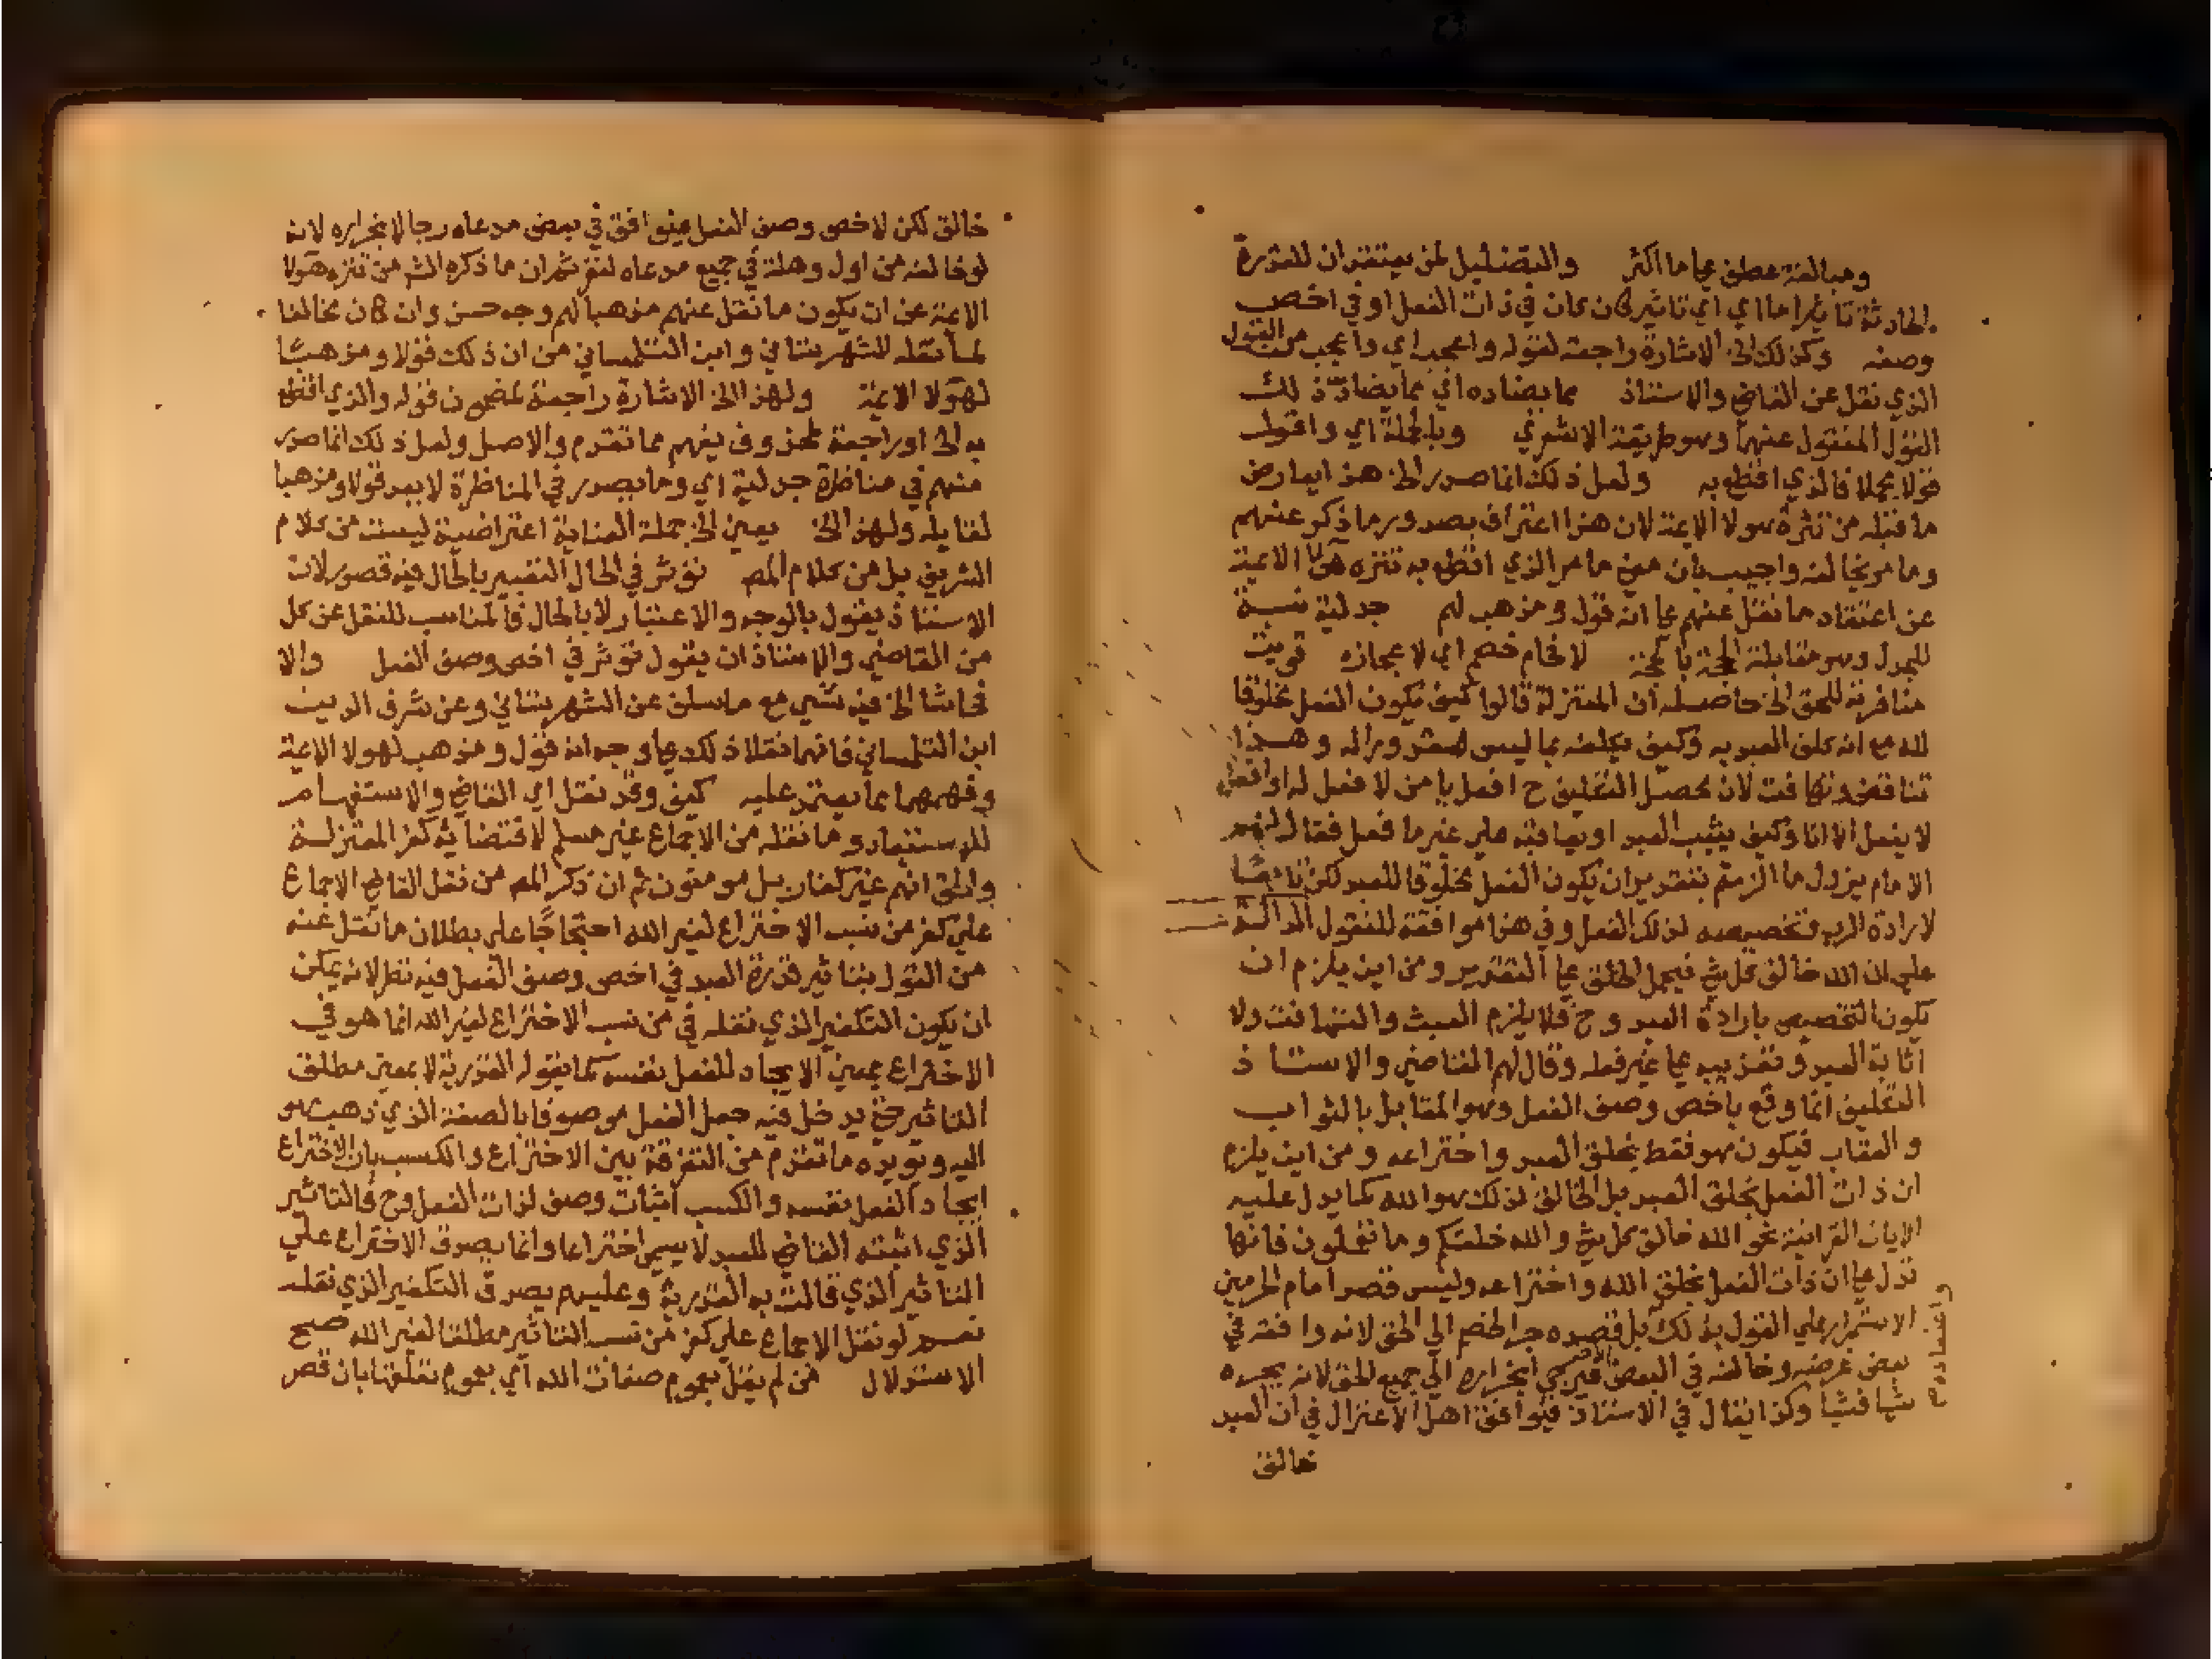 ومبالغة عطف علي ما اكثر والتضليل لمن يعتقد ان للقدرة
الحادثة تاثيرا ما اي اي تاثير كان كان في ذات الفعل او في اخص
وصفه وكذلك الخ الاشارة راجعة لقوله واعجب اي واعجب من القول
الذي نقل عن القاضي والاستاذ مما يضاده اي مما يضاد ذلك
القول المنقول عنهما وهو طريقة الاشعري وبالجملة اي واقول
قولا مجملا فالذي اقطع به ولعل ذلك انما صدر الخ هذا يعارض
ما قبله من تنزه هولا الايمة لان هذا اعتراف بصدور ما ذكر عنهم
وما مر يخالفه واجيب بان معني ما مر الذي اقطع به تنزه هولا الايمة
عن اعتقاد ما نقل عنهم علي انه قول ومذهب لهم جدلية نسبة
للجدل وهو مقابلة الحجة بالحجة لافحام خصم اي لاعجازه قويت
منافرته للحق الخ حاصله ان المعتزلة قالوا كيف يكون الفعل مخلوقا
لله مع انه كلف العبد به وكيف يكلفه بما ليس مقدورا له وهذا
تناقض وتهافت لان محصل التكليف ح افعل يا من لا فعل له او افعل
لا يفعل الا انا وكيف يثيب العبد او يعاقبه علي غير ما فعل فقال لهم
الامام يزول ما الزمتم بتقدير ان يكون الفعل مخلوقا للعبد لكن تابعا
لارادة الرب وتخصيصه لذلك الفعل وفي هذا موافقة للنقول الدالة
علي ان الله خالق كل شي فيحمل الخلق علي التقدير ومن اين يلزم ان
يكون التخصيص بارادة العبد وح فلا يلزم العبث والتهافت ولا
اثابة العبد وتعذيبه علي غير فعله وقال لهم القاضي والاستاذ
التكليف انما وقع باخص وصف الفعل وهو المقابل بالثواب
والعقاب فيكون هو فقط بخلق العبد واختراعه ومن اين يلزم
ان ذات الفعل بخلق العبد بل الخالق لذلك هو الله كما يدل عليه
الايات القرانية نحو الله خالق كل شي والله خلقكم وما تعملون فانها
تدل علي ان ذات الفعل بخلق الله واختراعه وليس قصد امام الحرمين
الاستمرار علي القول بذلك بل قصده جر الخصم الي الحق لانه وافقه في
بعض غرضه وخالفه في البعض فيرجي انجراره الي جميع الحق لانه يجره
شيا فشيا وكذا يقال في الاستاذ فيوافق اهل الاعتزال في ان العبد
خالق
خالق لكن لاخص وصف الفعل فيوافق في بعض مدعاه رجا لانجراره لانه
لو خالفه من اول وهلة في جميع مدعاه لنفر ثم ان ما ذكره الش من تنزه هولا
الايمة عن ان يكون ما نقل عنهم مذهبا لهم وجه حسن وان كان مخالفا
لما نقله الشهرستاني وابن التلمساني من ان ذلك قولا ومذهبا
لهولا الايمة ولهذا الخ الاشارة راجعة لمضمون قوله والذي اقطع
به الخ او راجعة لمحذوف يفهم مما تقدم والاصل ولعل ذلك انما صدر
منهم في مناظرة جدلية اي وما يصدر في المناظرة لا يعد قولا ومذهبا
لقايله ولهذا الخ يعني الخ جملة العناية اعتراضية ليست من كلام
الشريف بل من كلام المص تؤثر في الحال التعبير بالحال فيه قصور لان
الاستاذ يقول بالوجه والاعتبار لا بالحال فالمناسب للنقل عن كل
من القاضي والاستاذ ان يقول تؤثر في اخص وصف الفعل والا
فحاشا الخ فيه شي مع ما سلف عن الشهرستاني وعن شرف الدين
ابن التلمساني فانهما نقلا ذلك علي وجه انه قول ومذهب لهولا الايمة
وفهمهما مما يعتمد عليه كيف وقد نقل اي القاضي والاستفهام
للاستبعاد وما نقله من الاجماع غير مسلم لاقتضايه كفر المعتزلة
والحق انهم غير كفار بل مومنون ثم ان ذكر المص من نقل القاضي الاجماع
علي كفر من نسب الاختراع لغير الله احتجاجا علي بطلان ما نقل عنه
من القول بتاثير قدرة العبد في اخص وصف الفعل فيه نظر لانه يمكن
ان يكون التكفير الذي نقله في من نسب الاختراع لغير الله انما هو في
الاختراع بمعني الايجاد للفعل نفسه كما يقوله القدرية لا بمعني مطلق
التاثير حتي يدخل فيه جعل الفعل موصوفا بالصفة الذي ذهب هو
اليه ويويده ما تقدم من التفرقة بين الاختراع والكسب بان الاختراع
ايجاد الفعل نفسه والكسب اثبات وصف لذات الفعل وح فالتاثير
الذي اثبته القاضي للعبد لا يسمي اختراعا وانما يصدق الاختراع علي
التاثير الذي قالت به القدرية وعليهم يصدق التكفير الذي نقله
نعم لو نقل الاجماع علي كفر من نسب التاثير مطلقا لغير الله صح
الاستدلال من لم يقل بعموم صفات الله اي بعموم تعلقها بان قصر